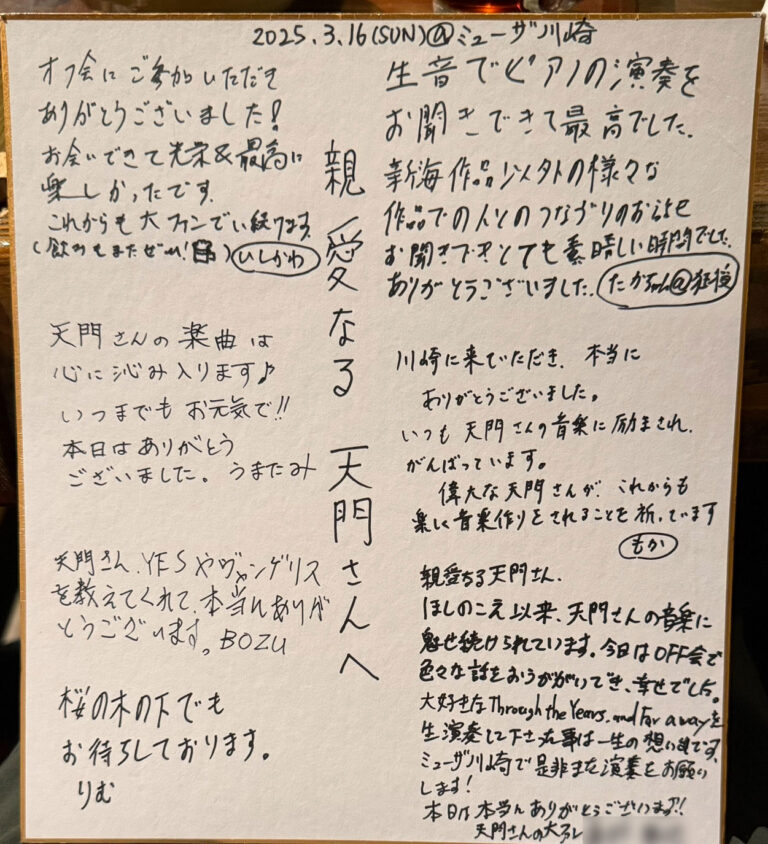 2025.3.16(SUN)@ミューザ川崎
オフ会にご参加いただき
ありがとうございました!
お会いできて光栄&最高に
楽しかったです.
これからも大ファンでい続けます.
(飲みもまたぜひ! )いしかわ
親愛なる 天門さんへ
生音でピアノの演奏を
お聞きできて最高でした.
新海作品以外の様々な
作品での人とのつながりのお話を
お聞きできとても素晴しい時間でした.
ありがとうございました. たかちゃん@狛江
天門さんの楽曲は
心に沁み入ります♪
いつまでもお元気で!!
本日はありがとう
ございました。 うまたみ
川崎に来ていただき、本当に
ありがとうございました。
いつも天門さんの音楽に励まされ、
がんばっています。
偉大な天門さんが、これからも
楽しく音楽作りをされることを祈っています
もか
天門さん、YESやヴァンゲリス
を教えてくれて、本当にありが
とうございます。BOZU
親愛なる天門さん、
ほしのこえ以来、天門さんの音楽に
魅せ続けられています。今日はOFF会で
色々な話をおうかがいでき、幸せでした。
大好きなThrough the Years, and Far awayを
生演奏して下さった事は一生の想い出です。
ミューザ川崎で是非また演奏をお願い
します!
本日は本当にありがとうございます!!
天門さんの大
桜の木の下でも
お待ちしております。
りむ